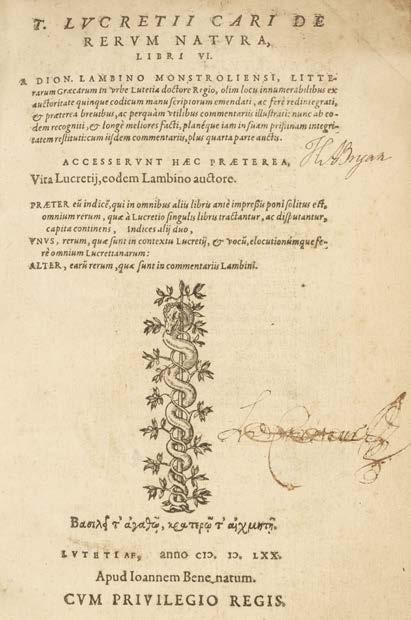 T. LVCRETII CARI DE
RERVM NATVRA,
LIBRI VI.
A DION. LAMBINO MONSTROLIENSI, LITTE-
rarum Græcarum in vrbe Lutetia doctore Regio, olim locis innumerabilibus ex
auctoritate quinque codicum manu scriptorum emendati, ac ferè redintegrati,
& præterea breuibus, ac perquàm vtilibus commentariis illustrati: nunc ab eo-
dem recogniti, & longè meliores facti, planéque iam in suam pristinam integri-
tatem restituti: cum iisdem commentariis, plus quarta parte auctis.
H. Bryan
ACCESSERVNT HAEC PRAETEREA,
Vita Lucretij, eodem Lambino auctore.
PRAETER eū indicē, qui in omnibus aliis libris antè impreßis poni solitus est,
omnium rerum, quæ à Lucretio singulis libris tractantur, ac disputantur,
capita continens, Indices alij duo,
VNVS, rerum, quæ sunt in contextu Lucretij, & vocū, elocutionúmque fe-
rè omnium Lucretianarum:
ALTER, earū rerum, quæ sunt in commentariis Lambini.
Βασιλεῖ τ' ἀγαθῷ, κρατερῷ τ' αἰχμητῇ.
LVTETIAE, anno CIↃ. IↃ. LXX.
Apud Ioannem Benenatum.
CVM PRIVILEGIO REGIS.